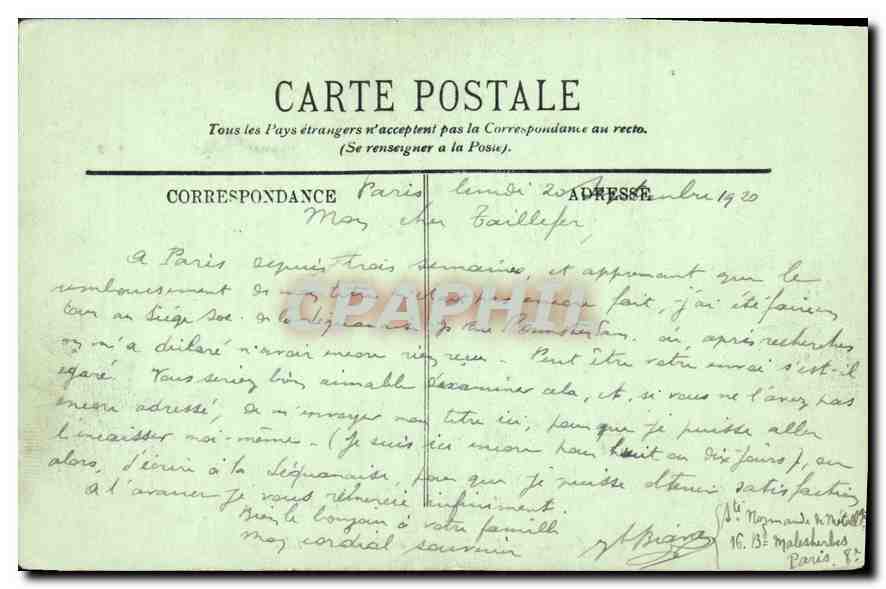 CARTE POSTALE
Tous les Pays étrangers n'acceptent pas la Correspondance au recto.
(Se renseigner a la Poste).
CORRESPONDANCE
ADRESSE
Paris lundi 20 Septembre 1920
Mon cher Taillefer,
A Paris depuis trois semaines, et apprenant que le
remboursement de mon titre n'est pas encore fait, j'ai été faire un
tour au Siège Soc. de la Séquanaise, rue où, après recherches
on m'a déclaré n'avoir encore rien reçu. Peut être votre envoi s'est-il
égaré. Vous seriez bien aimable d'examiner cela, et, si vous ne l'avez pas
encore adressé, de m'envoyer mon titre ici, pour que je puisse aller
l'encaisser moi-même. (Je suis ici encore pour huit ou dix jours), ou
alors, d'écrire à la Séquanaise, pour que je puisse obtenir satisfaction
A l'avance je vous remercie infiniment.
Bien le bonjour à votre famille
Mon cordial souvenir
Sté Normande de
16. Bd Malesherbes
Paris. 8e
CPAPHIL